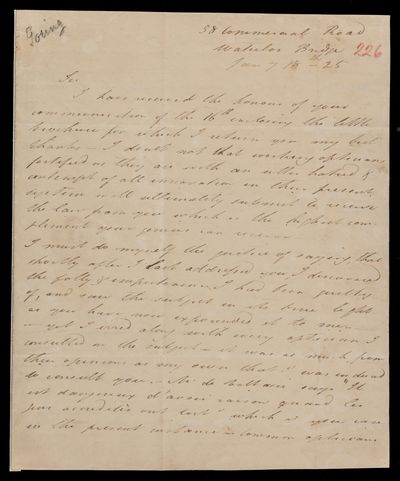 Goring
58 Commercial Road
Waterloo Bridge
226
Jany 18th - 25
Sir
I have received the honour of your
communication of the 16th enclosing the little
brochure for which I return you my best
thanks - I doubt not that working opticians
fortified as they are with an utter hatred &
contempt of all innovation in their present
system will ultimately submit to receive
the law from you which is the highest com
pliment your genius can receive
I must do myself the justice of saying that
shortly after I last addressed you I discovered
the folly & impertinence I had been guilty
of, and saw the subject in its true light
as you have now expounded it to me
- yet I erred along with every optician I
consulted on the subject - it was as much from
their opinions as my own that I was induced
to consult you - Mr de Voltaire says "Il
est dangereux d'avoir raison quand les
gens accrédités ont tort" which is your case
in the present instance - common opticians